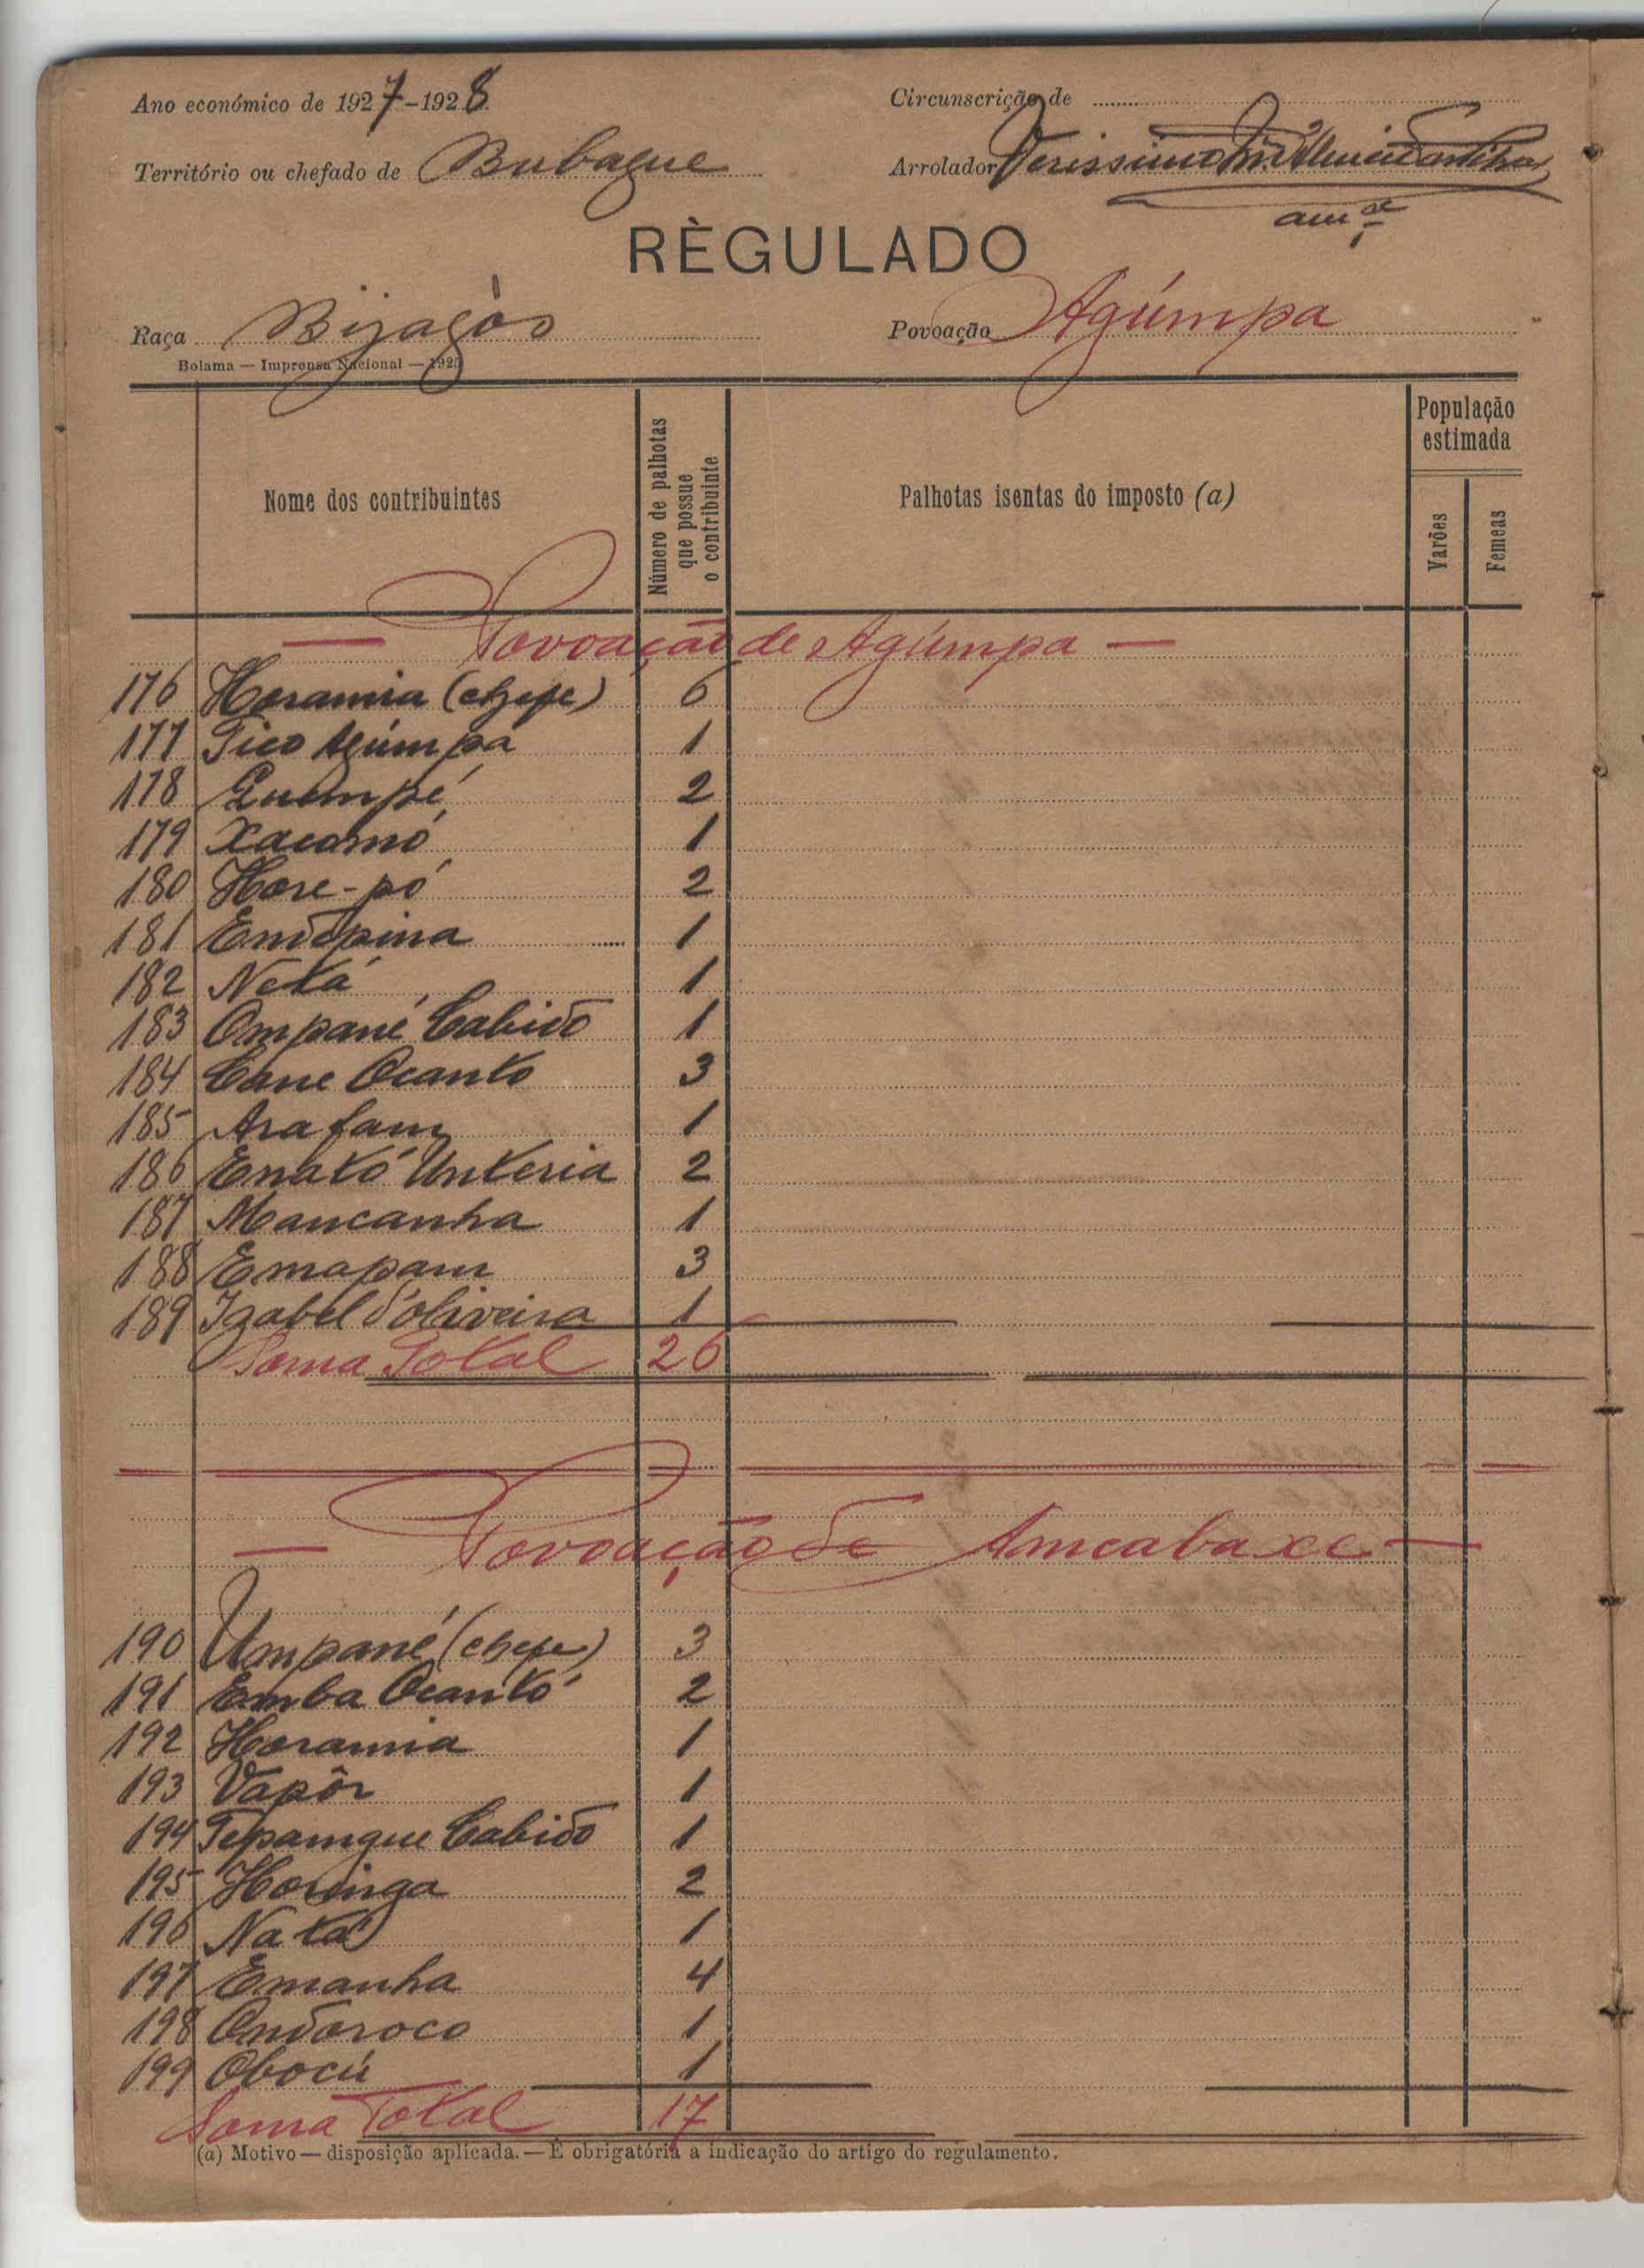 Ano económico de 1927-1928
Circunscrição de
Território ou chefado de Bubaque
Arrolador Verissimo
RÈGULADO
Raça Bijagós
Povoação Agúmpa
Bolama — Imprensa Nacional — 192
Nome dos contribuintes
Número de palhotas que possue o contribuinte
Palhotas isentas do imposto (a)
População estimada
Varões
Femeas
— Povoação de Agúmpa —
176 Horamia (chefe) 6
177 Tico Agúmpa 1
178 Quempé 2
179 Xacomó 1
180 Hore-pó 2
181 Endopina 1
182 Netá 1
183 Ompané Cabido 1
184 Cane Ocanto 3
185 Arafam 1
186 Enató Unteria 2
187 Mancanha 1
188 Emapam 3
189 Izabel d'oliveira 1
Soma Total 26
— Povoação de Ancabaxe —
190 Umpané (chefe) 3
191 Emba Ocantó 2
192 Horamia 1
193 Vapôr 1
194 Tepamque Cabido 1
195 Horinga 2
196 Natá 1
197 Emanha 4
198 Ondoroco 1
199 Obocú 1
Soma Total 17
(a) Motivo — disposição aplicada. — É obrigatória a indicação do artigo do regulamento.